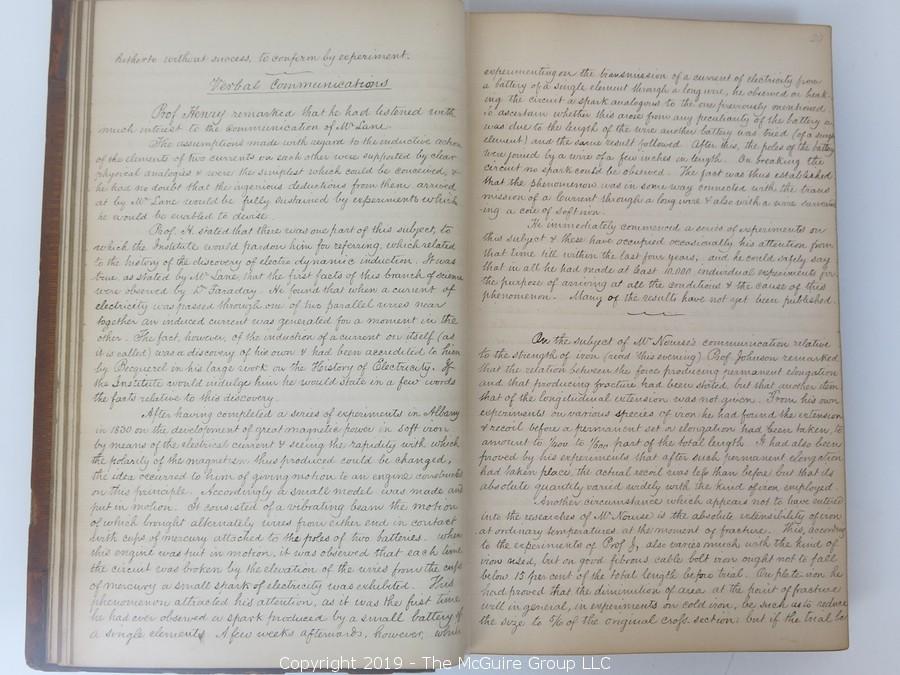 hitherto without success, to confirm by experiment.
Verbal Communications
Prof Henry remarked that he had listened with
much interest to the Communication of Mr Lane
The assumptions made with regard to the inductive action
of the elements of two currents on each other were supported by clear
physical analogies & were the simplest which could be conceived, &
he has no doubt that the ingenious deductions from them arrived
at by Mr Lane would be fully sustained by experiments which
he would be enabled to devise.
Prof. H. stated that there was one part of this subject, to
which the Institute would pardon him for referring, which related
to the history of the discovery of electro dynamic induction. It was
true, as stated by Mr Lane, that the first facts of this branch of science
were observed by Dr Faraday. He found that when a current of
electricity was passed through one of two parallel wires near
together an induced current was generated for a moment in the
other. The fact, however, of the induction of a current on itself (as
it is called) was a discovery of his own & had been accredited to him
by Becquerel in his large work on the History of Electricity. If
the Institute would indulge him he would state in a few words
the facts relative to this discovery.
After having completed a series of experiments in Albany
in 1830 on the development of great magnetic power in soft iron
by means of the electrical current & seeing the rapidity with which
the polarity of the magnetism thus produced could be changed,
the idea occurred to him of giving motion to an engine constructed
on this principle. Accordingly a small model was made and
put in motion. It consisted of a vibrating beam the motion
of which brought alternately wires from either end in contact
with cups of mercury attached to the poles of two batteries. When
this engine was put in motion, it was observed that each time
the circuit was broken by the elevation of the wires from the cups
of mercury a small spark of electricity was exhibited. This
phenomenon attracted his attention, as it was the first time
he had ever observed a spark produced by a small battery of
a single element. A few weeks afterwards, however, while
experimenting on the transmission of a current of electricity from
a battery of a single element through a long wire, he observed on break-
ing the circuit a spark analogous to the one previously mentioned
To ascertain whether this arose from any peculiarity of the battery or
was due to the length of the wire another battery was tried (of a single
element) and the same result followed. After this, the poles of the battery
were joined by a wire of a few inches in length. On breaking the
circuit no spark could be observed. The fact was thus established
that the phenomenon was in some way connected with the trans
mission of a current through a long wire & also with a wire surround-
ing a core of soft iron.
He immediately commenced a series of experiments on
this subject & these have occupied occasionally his attention from
that time till within the last four years, and he could safely say
that in all he had made at least 10.000 individual experiments for
the purpose of arriving at all the conditions & the cause of this
phenomenon. Many of the results have not yet been published.
On the subject of Mr Nourse's communication relative
to the strength of iron (read this evening) Prof. Johnson remarked
that the relation between the force producing permanent elongation
and that producing fracture had been stated, but that another item
that of the longitudinal extension was not given. From his own
experiments on various species of iron he had found the extension
& recoil before a permanent set or elongation had been taken, to
amount to part of the total length. It had also been
proved by his experiments that after such permanent elongation
had taken place, the actual recoil was less than before but that its
absolute quantity varied widely with the kind of iron employed.
Another circumstance which appears not to have entered
into the researches of Mr Nourse is the absolute extensibility of iron
at ordinary temperatures at the moment of fracture. This, according
to the experiments of Prof J, also varies much with the kind of
iron used, but on good fibrous cable bolt iron ought not to fall
below 15 per cent of the total length before trial. On plate iron he
had proved that the diminution of area at the point of fracture
will in general, in experiments on cold iron, be such as to reduce
the size to of the original cross section; but if the trial be
Copyright 2019 - The McGuire Group LLC